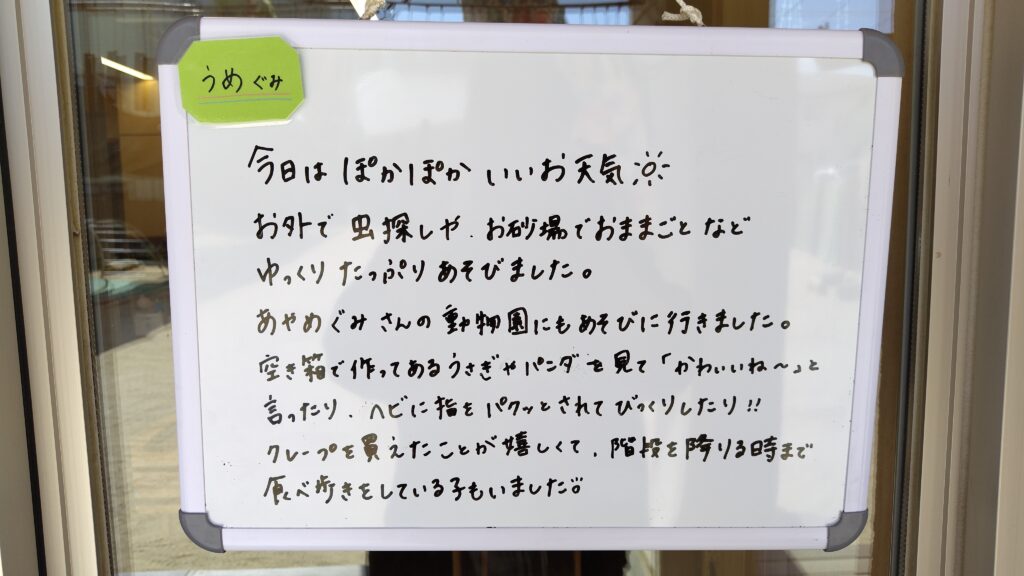 うめぐみ
今日は ぽかぽか いいお天気☼
お外で 虫探しや、お砂場でおままごと など
ゆっくり たっぷり あそびました。
あやめぐみさんの 動物園にもあそびに行きました。
空き箱で作ってあるうさぎやパンダを見て「かわいいね〜」と
言ったり、ヘビに指をパクッとされてびっくりしたり!!
クレープを買えたことが嬉しくて、階段を降りる時まで
食べ歩きをしている子もいました